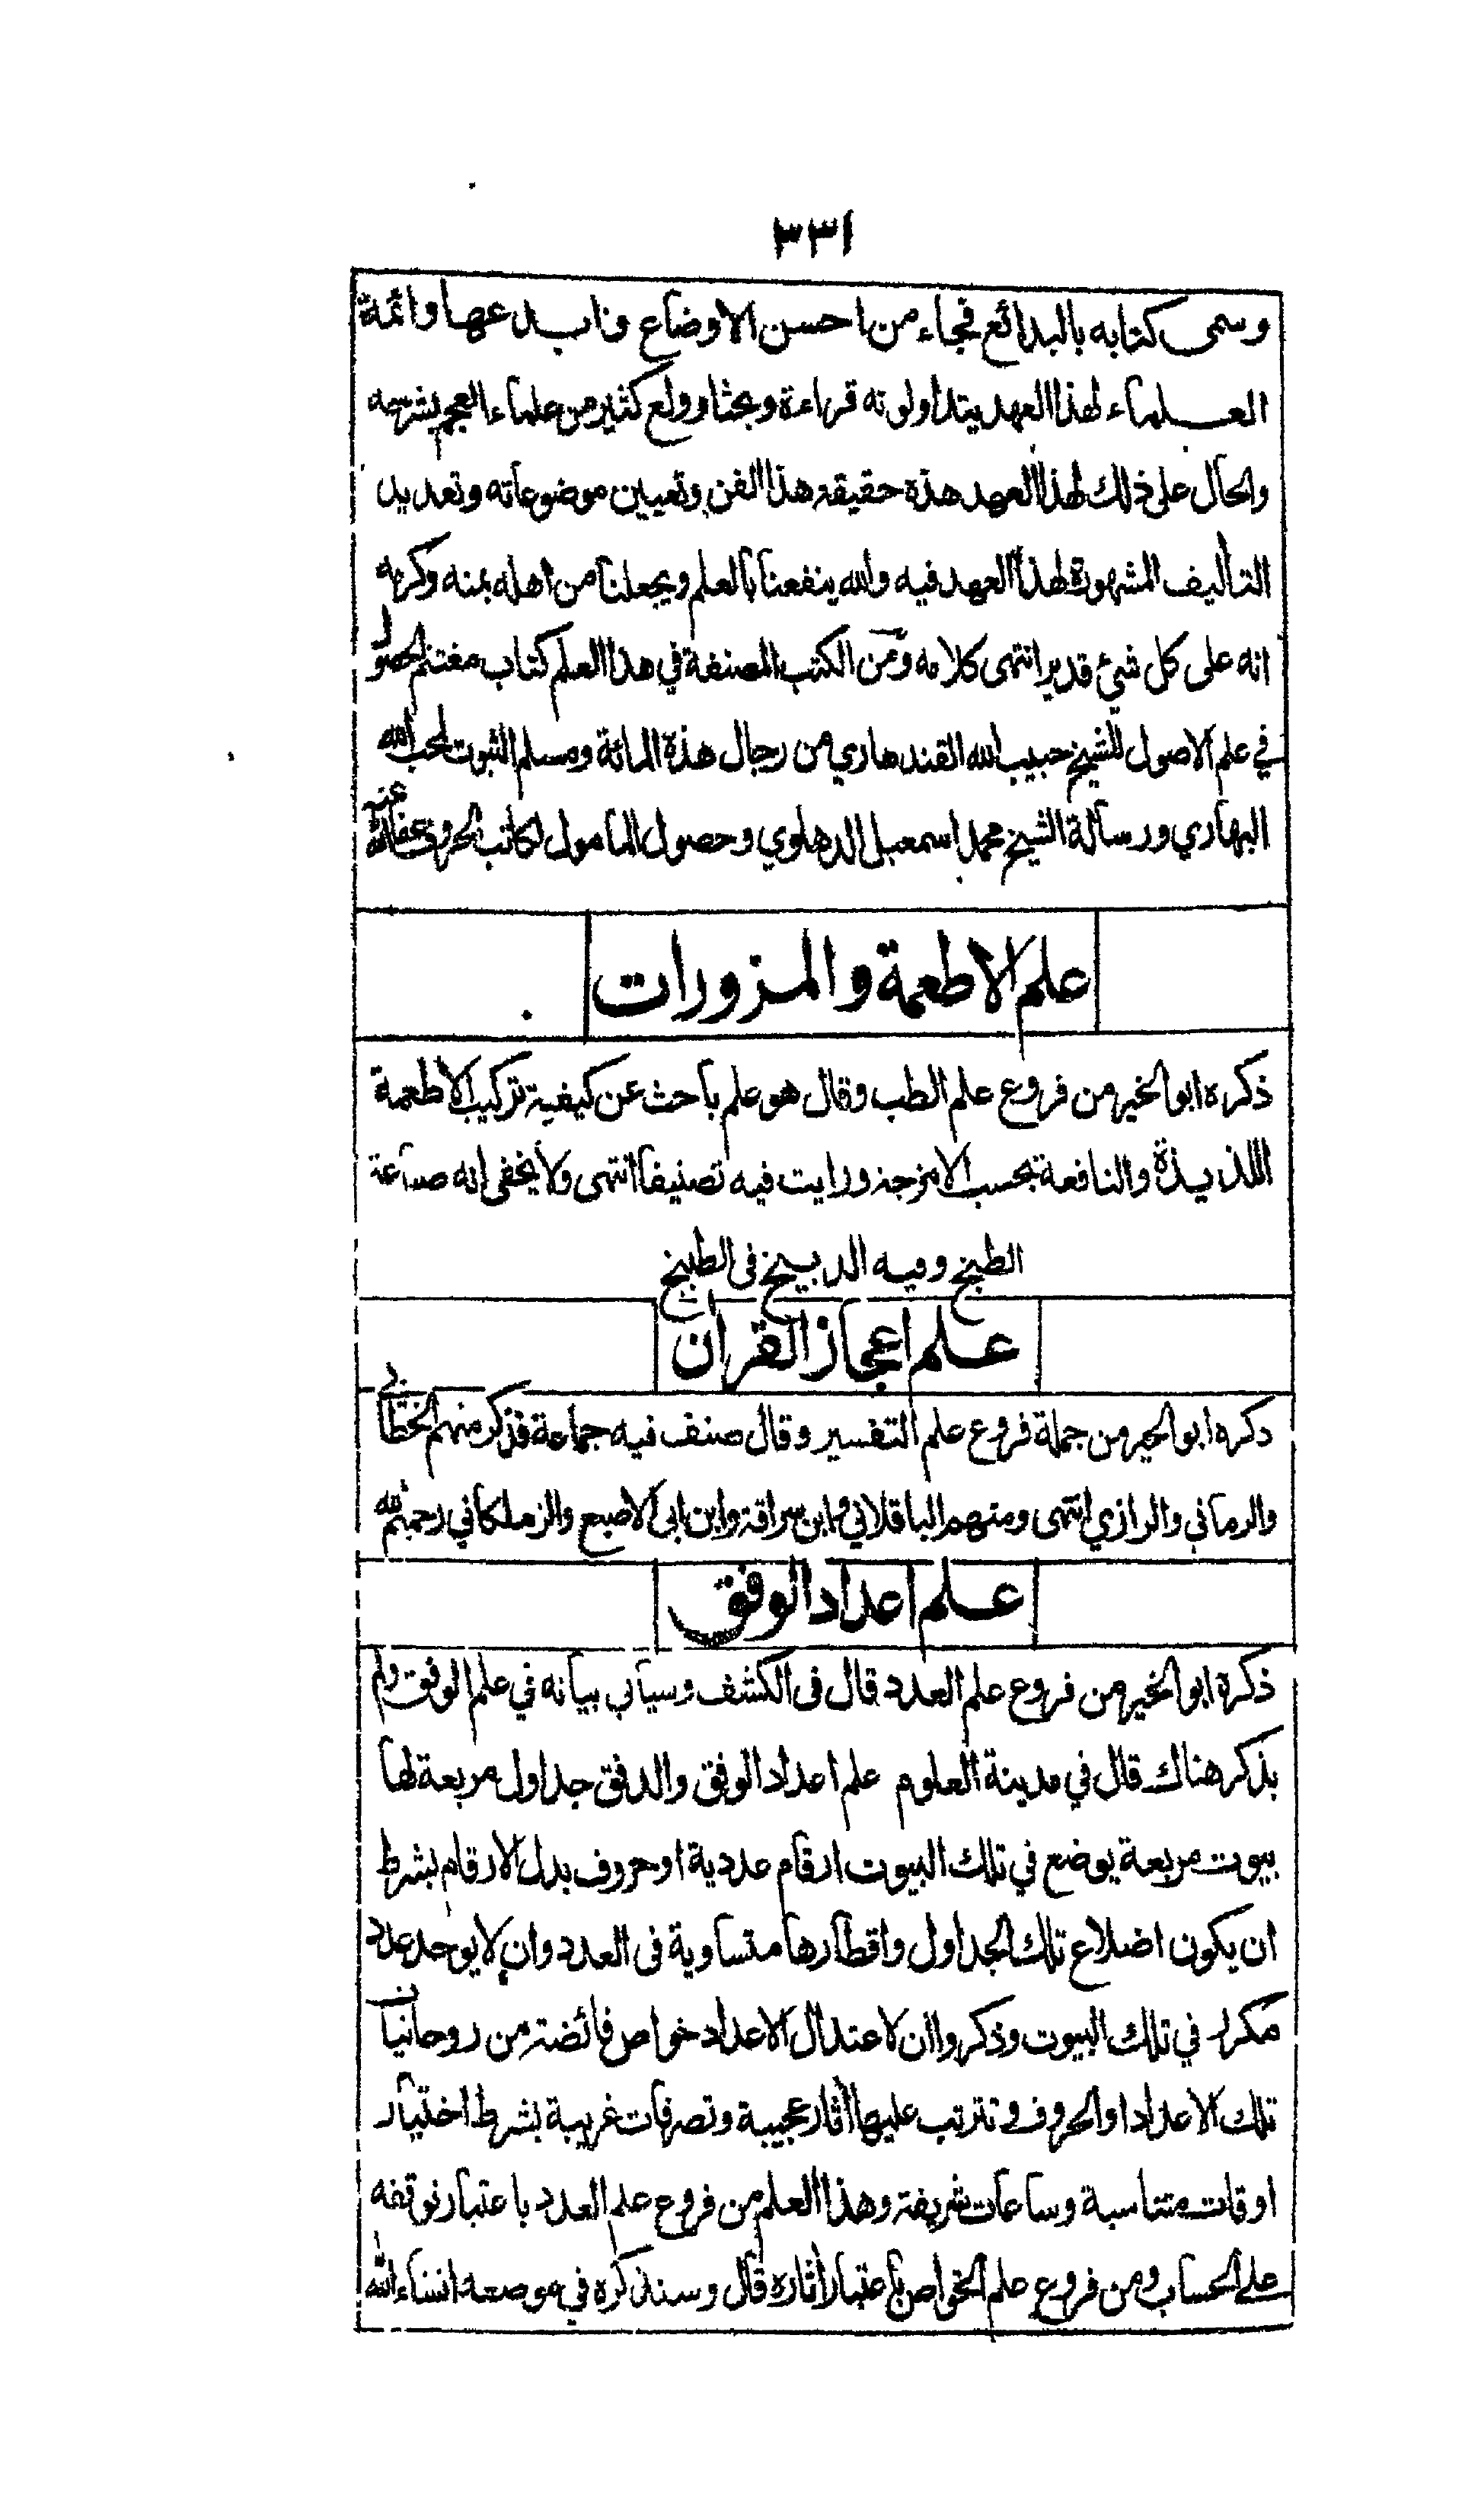 ٣٣١
وسمى كتابه بالبدائع فجاء من احسن الاوضاع وابدعها وائمة
العلماء لهذا العهد يتداولونه قراءة وبحثا وولع كثير من علماء العجم بشرحه
والحال على ذلك لهذا العهد هذه حقيقة هذا الفن وتعيين موضوعاته وتعديد
التأليف المشهورة لهذا العهد فيه والله ينفعنا بالعلم ويجعلنا من اهله بمنه وكرمه
انه على كل شيء قدير انتهى كلامه ومن الكتب المصنفة في هذا العلم كتاب مغتنم الحصول
في علم الاصول للشيخ حبيب الله القندهاري من رجال هذه المائة ومسلم الثبوت لمحب الله
البهاري ورسالة الشيخ محمد اسمعيل الدهلوي وحصول المامول لكاتب الحروف عفا الله عنه
علم الاطعمة والمزورات
ذكره ابو الخير من فروع علم الطب وقال هو علم باحث عن كيفية تركيب الاطعمة
اللذيذة والنافعة بحسب الامزجة ورايت فيه تصنيفا انتهى ولا يخفى انه صناعة
الطبخ وفيه الدبيخ فى الطبيخ
علم اعجاز القران
ذكره ابو الخير من جملة فروع علم التفسير وقال صنف فيه جماعة فذكر منهم الخطابي
والرماني والرازي انتهى ومنهم الباقلاني وابن سراقة وابن ابى الاصبع والزملكاني رحمهم الله
علم اعداد الوفق
ذكره ابو الخير من فروع علم العدد قال فى الكشف وسياتي بيانه في علم الوفق ولم
يذكر هناك قال في مدينة العلوم علم اعداد الوفق والدفق جداول مربعة لها
بيوت مربعة يوضع في تلك البيوت ارقام عددية او حروف بدل الارقام بشرط
ان يكون اضلاع تلك الجداول واقطارها متساوية فى العدد وان لا يوجد عدد
مكرر في تلك البيوت وذكروا ان لاعتدال الاعداد خواص فائضة من روحانيات
تلك الاعداد او الحروف وتترتب عليها اثار عجيبة وتصرفات غريبة بشرط اختيار
اوقات متناسبة وساعات شريفة وهذا العلم من فروع علم العدد باعتبار توقفه
على الحساب ومن فروع علم الخواص باعتبار اثاره قال وسنذكره في موضعه انشاء الله